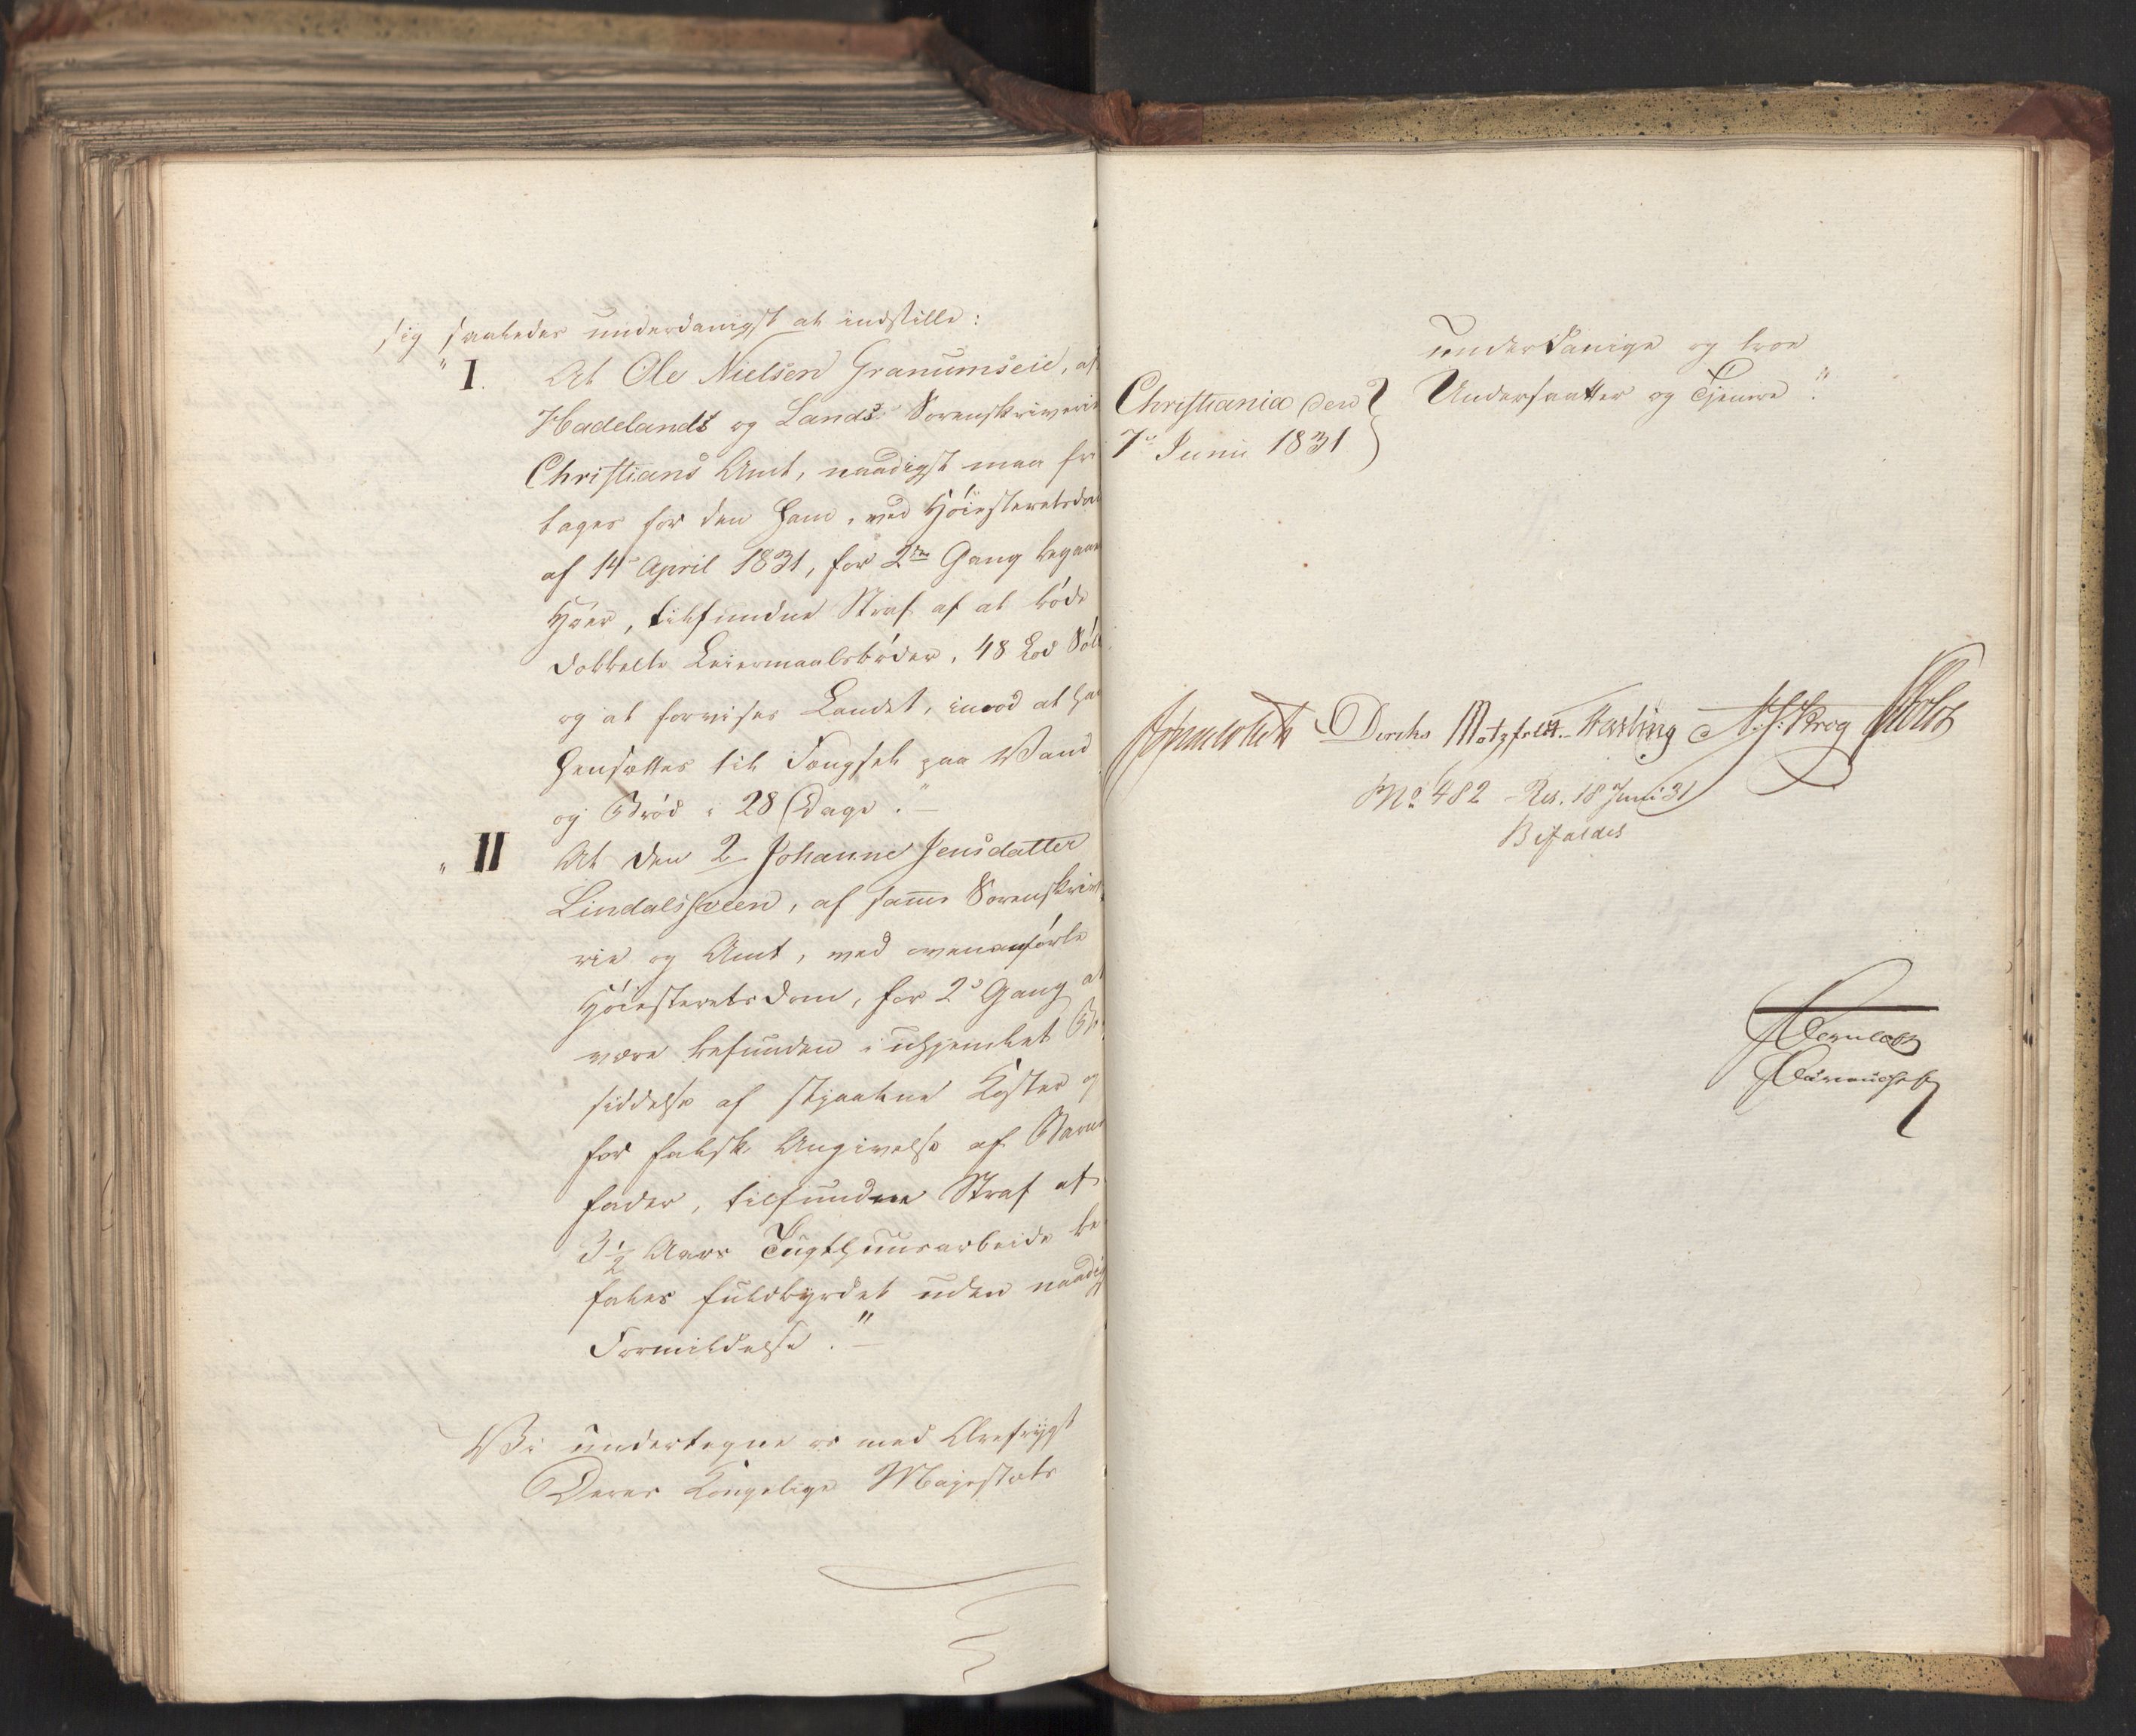 sig saaledes underdanigst at indstille:
"I. At Ole Nielsen Granumseie, af
Hadelands og Lands Sorenskriverie
Christians Amt, naadigst maa fri
tages for den ham, ved Höiesteretsdom
af 14 April 1831, for 2den Gang begaaet
Hoer, tilfundne Straf af at böde
dobbelte Leiermaalsböder, 48 Lod Sölv
og at forvises Landet, imod at han
hensættes til Fængsel paa Vand
og Bröd i 28 Dage."
"II At den 2 Johanne Jensdatter
Lindalssveen, af samme Sorenskrive
rie og Amt, ved ovenanförte
Höiesteretsdom, for 2d Gang at
være befunden i uhjemlet Be
siddelse af stjaalne Koster og
for falsk Angivelse af Barne
fader, tilfundne Straf af
3½ Aars Tugthuusarbeide be
fales fuldbyrdet uden naadig
Formildelse."
Vi undertegne os med Ærefrygt
Deres Kongelige Majestæts
underdanige og troe
Undersaatter og Tjenere."
Christiania den
7de Junii 1831
Diriks Motzfeldt Fasting N. J. Krog Holst
No 482 Res. 18 Juni 31
Bifaldes